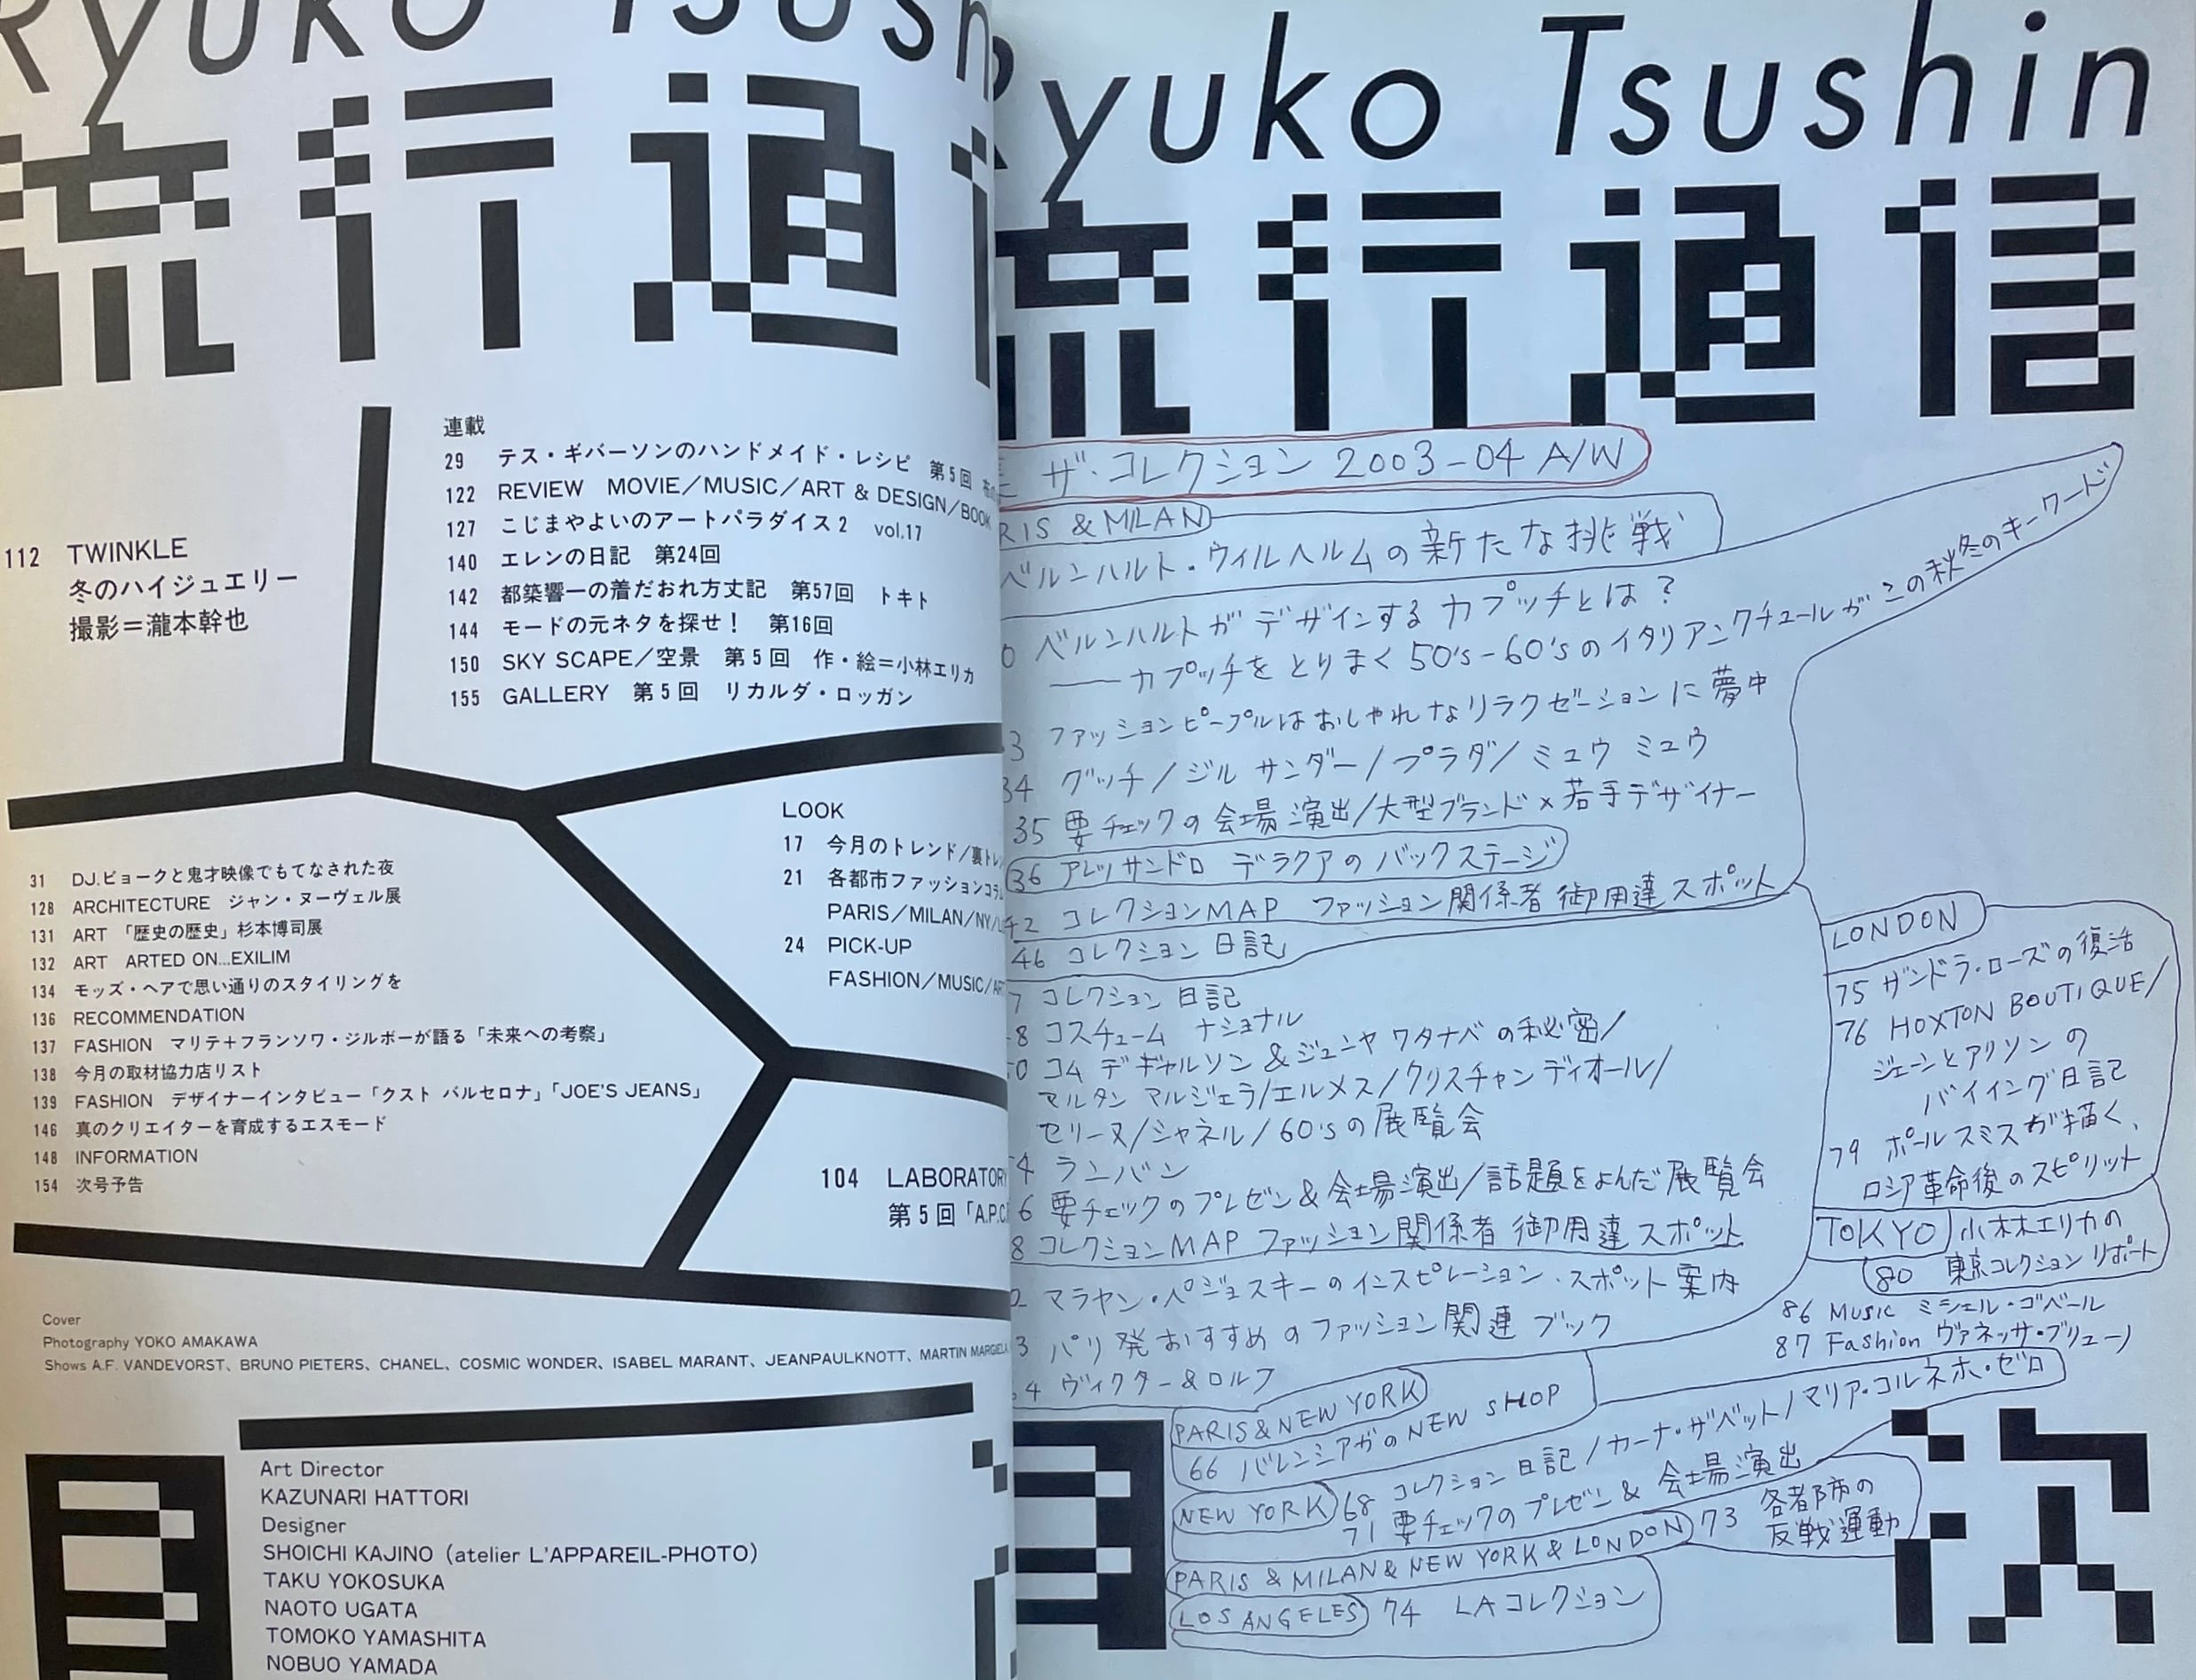 Ryuko Tsushin
流行通信
112 TWINKLE
冬のハイジュエリー
撮影＝瀧本幹也
連載
29 テス・ギバーソンのハンドメイド・レシピ 第5回
122 REVIEW MOVIE／MUSIC／ART & DESIGN／BOOK
127 こじまやよいのアートパラダイス2 vol.17
140 エレンの日記 第24回
142 都築響一の着だおれ方丈記 第57回 トキト
144 モードの元ネタを探せ！ 第16回
150 SKY SCAPE／空景 第5回 作・絵＝小林エリカ
155 GALLERY 第5回 リカルダ・ロッガン
LOOK
17 今月のトレンド／裏トレ
21 各都市ファッションコラム
PARIS／MILAN／NY／L
24 PICK-UP
FASHION／MUSIC／AR
31 DJ.ビョークと鬼才映像でもてなされた夜
128 ARCHITECTURE ジャン・ヌーヴェル展
131 ART 「歴史の歴史」杉本博司展
132 ART ARTED ON...EXILIM
134 モッズ・ヘアで思い通りのスタイリングを
136 RECOMMENDATION
137 FASHION マリテ＋フランソワ・ジルボーが語る「未来への考察」
138 今月の取材協力店リスト
139 FASHION デザイナーインタビュー「クスト バルセロナ」「JOE'S JEANS」
146 真のクリエイターを育成するエスモード
148 INFORMATION
154 次号予告
104 LABORATORY
第5回「A.P.C.
Cover
Photography YOKO AMAKAWA
Shows A.F. VANDEVORST、BRUNO PIETERS、CHANEL、COSMIC WONDER、ISABEL MARANT、JEANPAULKNOTT、MARTIN MARGIELA
目
Art Director
KAZUNARI HATTORI
Designer
SHOICHI KAJINO（atelier L'APPAREIL-PHOTO）
TAKU YOKOSUKA
NAOTO UGATA
TOMOKO YAMASHITA
NOBUO YAMADA
Ryuko Tsushin
流行通信
ザ・コレクション 2003-04 A/W
RIS & MILAN
ベルンハルト・ウィルヘルムの新たな挑戦
0 ベルンハルトがデザインするカプッチとは？
——カプッチをとりまく50's-60'sのイタリアンクチュールがこの秋冬のキーワード
3 ファッションピープルはおしゃれなリラクゼーションに夢中
34 グッチ/ジル サンダー/プラダ/ミュウ ミュウ
35 要チェックの会場演出/大型ブランド×若手デザイナー
36 アレッサンドロ デラクアのバックステージ
42 コレクションMAP ファッション関係者 御用達スポット
46 コレクション日記
7 コレクション日記
8 コスチューム ナショナル
0 コム デ ギャルソン & ジュンヤ ワタナベの秘密/
マルタン マルジェラ/エルメス/クリスチャン ディオール/
セリーヌ/シャネル/60'sの展覧会
4 ランバン
6 要チェックのプレゼン&会場演出/話題をよんだ展覧会
8 コレクションMAP ファッション関係者 御用達スポット
2 マラヤン・ペジョスキーのインスピレーション・スポット案内
3 パリ発おすすめのファッション関連ブック
4 ヴィクター&ロルフ
PARIS & NEW YORK
66 バレンシアガのNEW SHOP
NEW YORK 68 コレクション日記/カーナ・ザベット/マリア・コルネホ・ゼロ
71 要チェックのプレゼン & 会場演出
PARIS & MILAN & NEW YORK & LONDON 73 各都市の
反戦運動
LOS ANGELES 74 LAコレクション
LONDON
75 ザンドラ・ローズの復活
76 HOXTON BOUTIQUE/
ジェーンとアリソンの
バイイング日記
79 ポールスミスが描く、
ロシア革命後のスピリット
TOKYO 小林エリカの
80 東京コレクションリポート
86 Music ミシェル・ゴベール
87 Fashion ヴァネッサ・ブリューノ
次